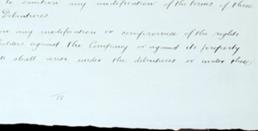 to sanction any modification of the terms of these
Debentures
any modification or compromise of the rights
holders against the Company or against its property
shall arise under the debentures or under these